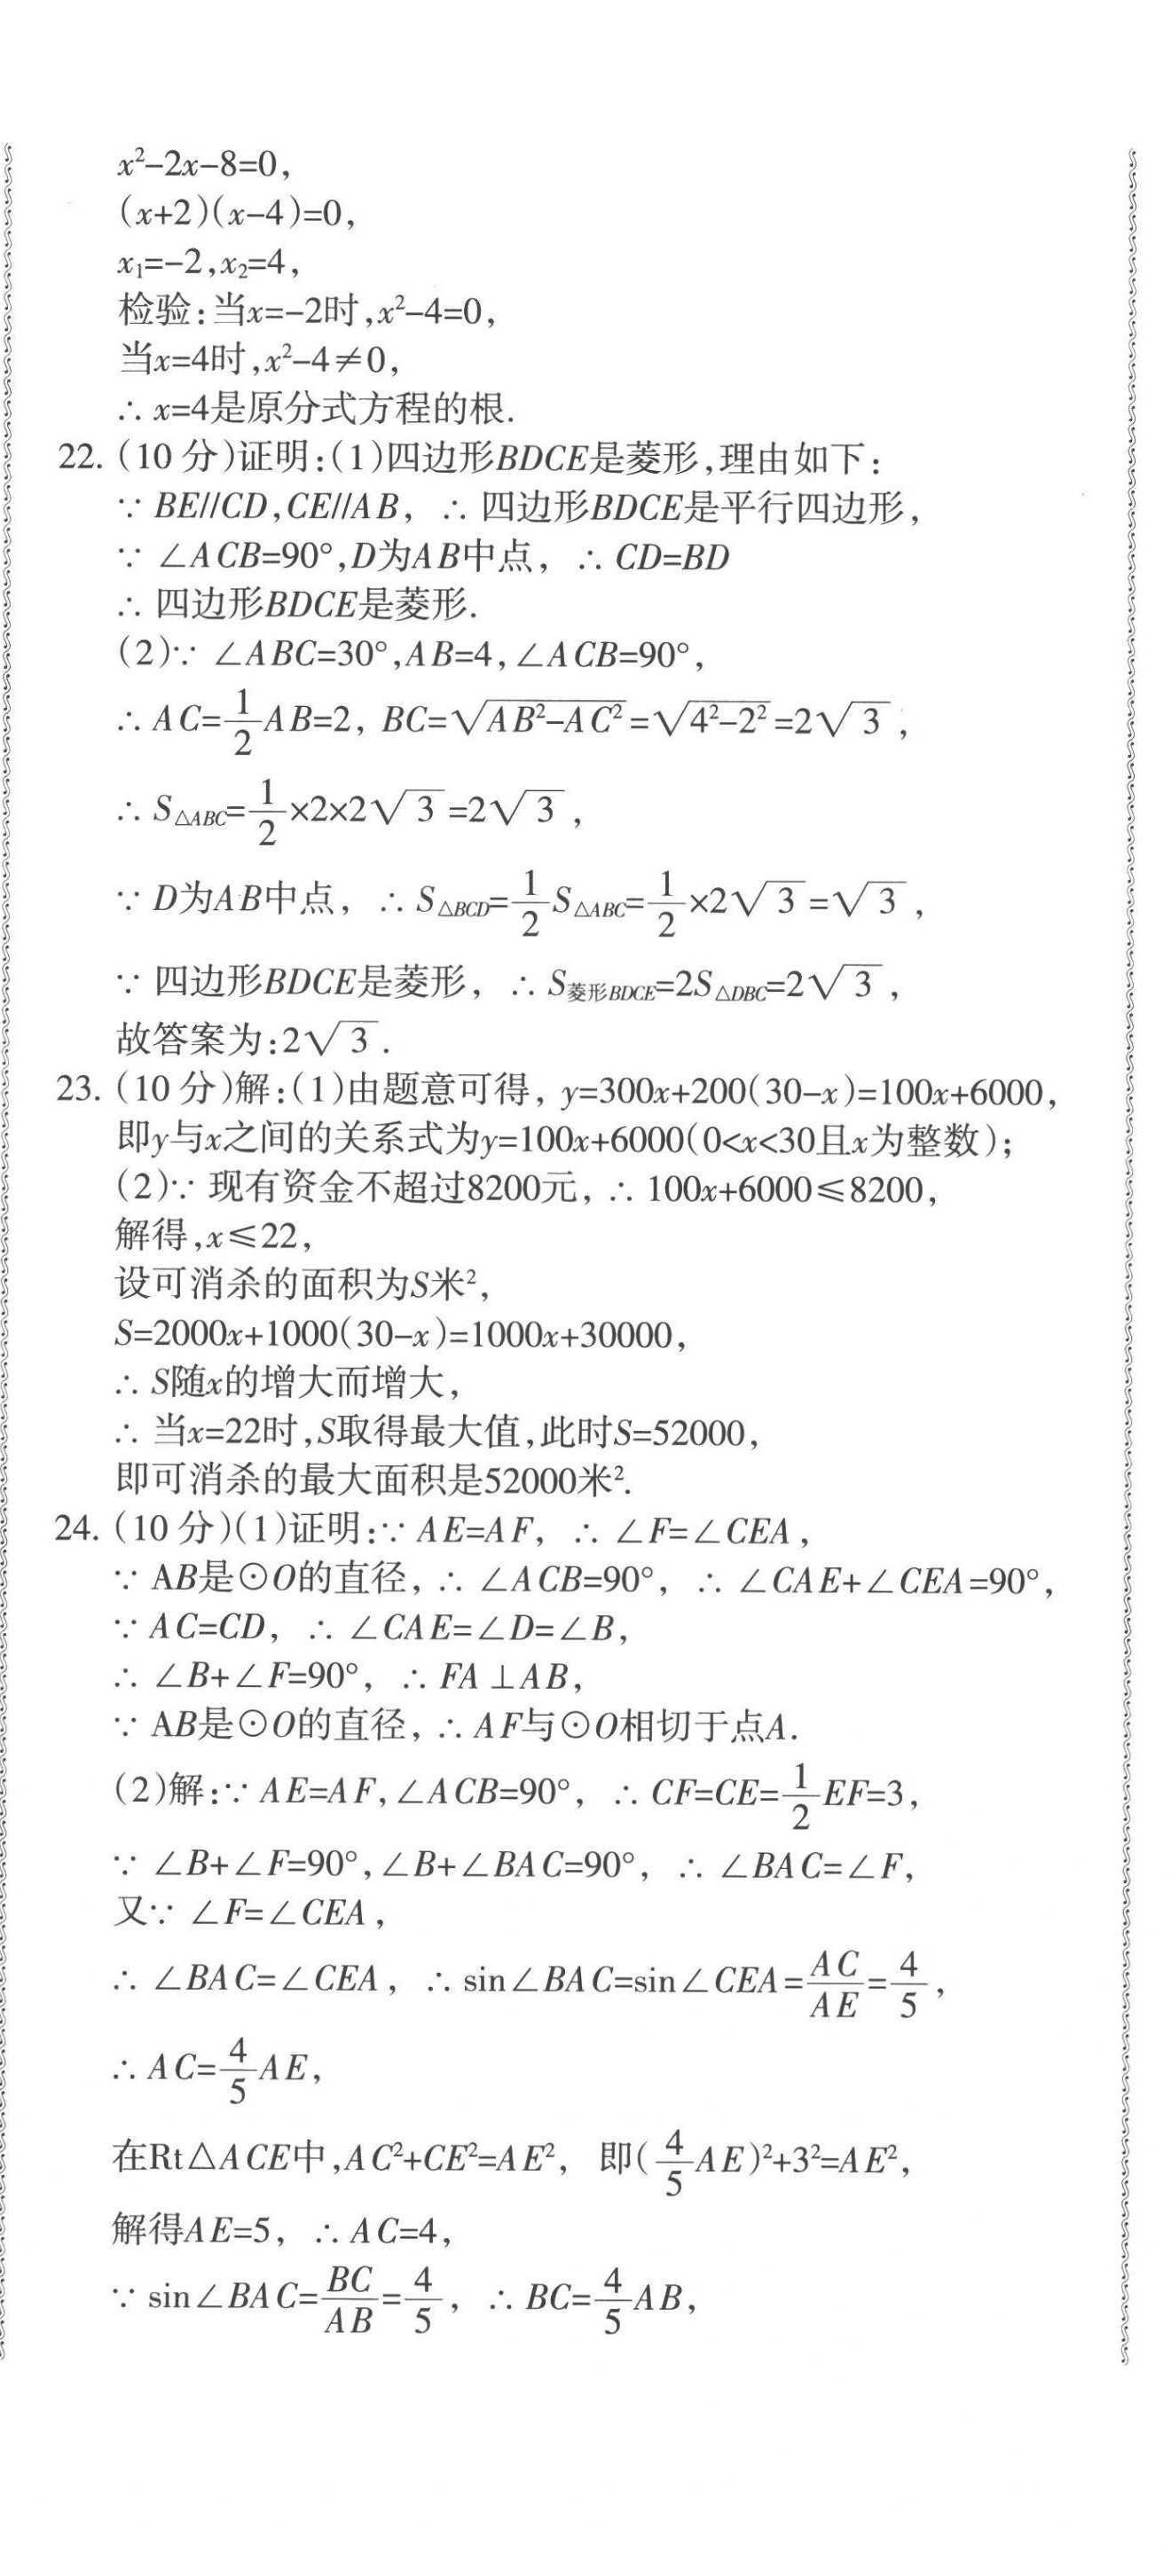 x²-2x-8=0,
(x+2)(x-4)=0,
x₁=-2,x₂=4,
检验:当x=-2时,x²-4=0,
当x=4时,x²-4≠0,
∴ x=4是原分式方程的根.
22. (10 分)证明:(1)四边形BDCE是菱形,理由如下:
∵ BE//CD,CE//AB, ∴ 四边形BDCE是平行四边形,
∵ ∠ACB=90°,D为AB中点, ∴ CD=BD
∴ 四边形BDCE是菱形.
(2)∵ ∠ABC=30°,AB=4,∠ACB=90°,
∴ AC=1/2AB=2, BC=√(AB²-AC²)=√(4²-2²)=2√3,
∴ S△ABC=1/2×2×2√3=2√3,
∵ D为AB中点, ∴ S△BCD=1/2S△ABC=1/2×2√3=√3,
∵ 四边形BDCE是菱形, ∴ S菱形BDCE=2S△DBC=2√3,
故答案为:2√3.
23. (10 分)解:(1)由题意可得, y=300x+200(30-x)=100x+6000,
即y与x之间的关系式为y=100x+6000(0<x<30且x为整数);
(2)∵ 现有资金不超过8200元, ∴ 100x+6000≤8200,
解得,x≤22,
设可消杀的面积为S米²,
S=2000x+1000(30-x)=1000x+30000,
∴ S随x的增大而增大,
∴ 当x=22时,S取得最大值,此时S=52000,
即可消杀的最大面积是52000米².
24. (10 分)(1)证明:∵ AE=AF, ∴ ∠F=∠CEA,
∵ AB是⊙O的直径, ∴ ∠ACB=90°, ∴ ∠CAE+∠CEA=90°,
∵ AC=CD, ∴ ∠CAE=∠D=∠B,
∴ ∠B+∠F=90°, ∴ FA⊥AB,
∵ AB是⊙O的直径, ∴ AF与⊙O相切于点A.
(2)解:∵ AE=AF,∠ACB=90°, ∴ CF=CE=1/2EF=3,
∵ ∠B+∠F=90°,∠B+∠BAC=90°, ∴ ∠BAC=∠F,
又∵ ∠F=∠CEA,
∴ ∠BAC=∠CEA, ∴ sin∠BAC=sin∠CEA=AC/AE=4/5,
∴ AC=4/5AE,
在Rt△ACE中,AC²+CE²=AE², 即(4/5AE)²+3²=AE²,
解得AE=5, ∴ AC=4,
∵ sin∠BAC=BC/AB=4/5, ∴ BC=4/5AB,